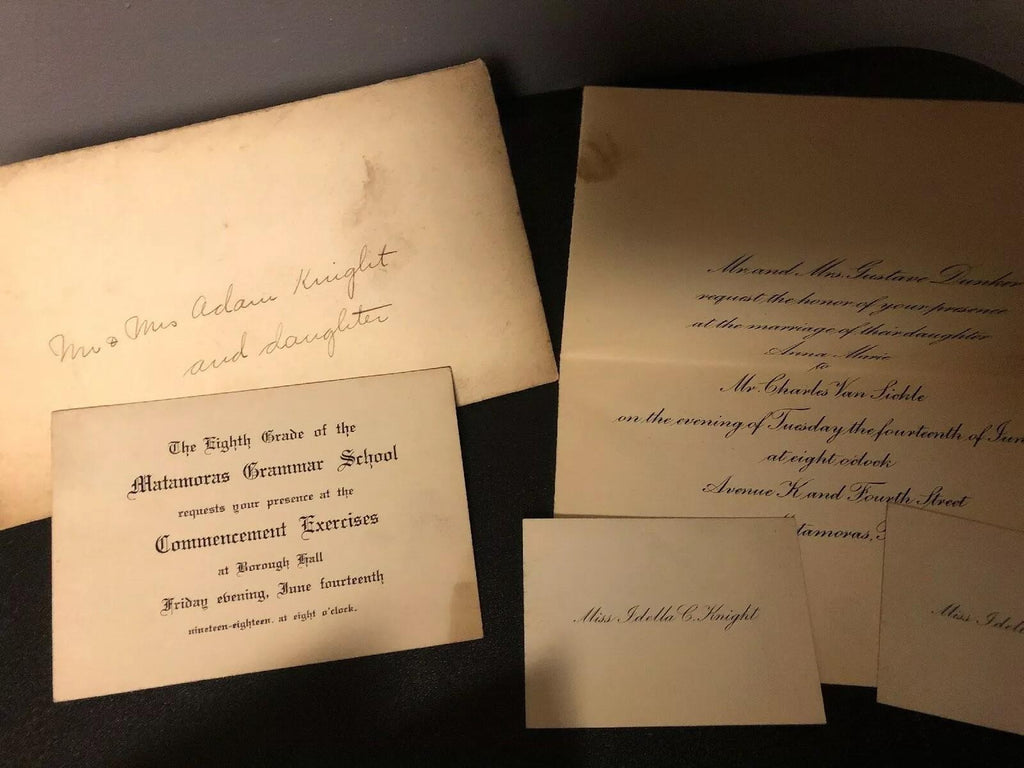 Mr & Mrs Adam Knight
and daughter
The Eighth Grade of the
Matamoras Grammar School
requests your presence at the
Commencement Exercises
at Borough Hall
Friday evening, June fourteenth
nineteen-eighteen, at eight o'clock.
Mr. and Mrs. Gustave Dunker
request the honor of your presence
at the marriage of their daughter
Anna Marie
to
Mr. Charles Van Sickle
on the evening of Tuesday the fourteenth of Jun
at eight o'clock
Avenue K and Fourth Street
tamoras,
Miss Idella C. Knight
Miss Idell